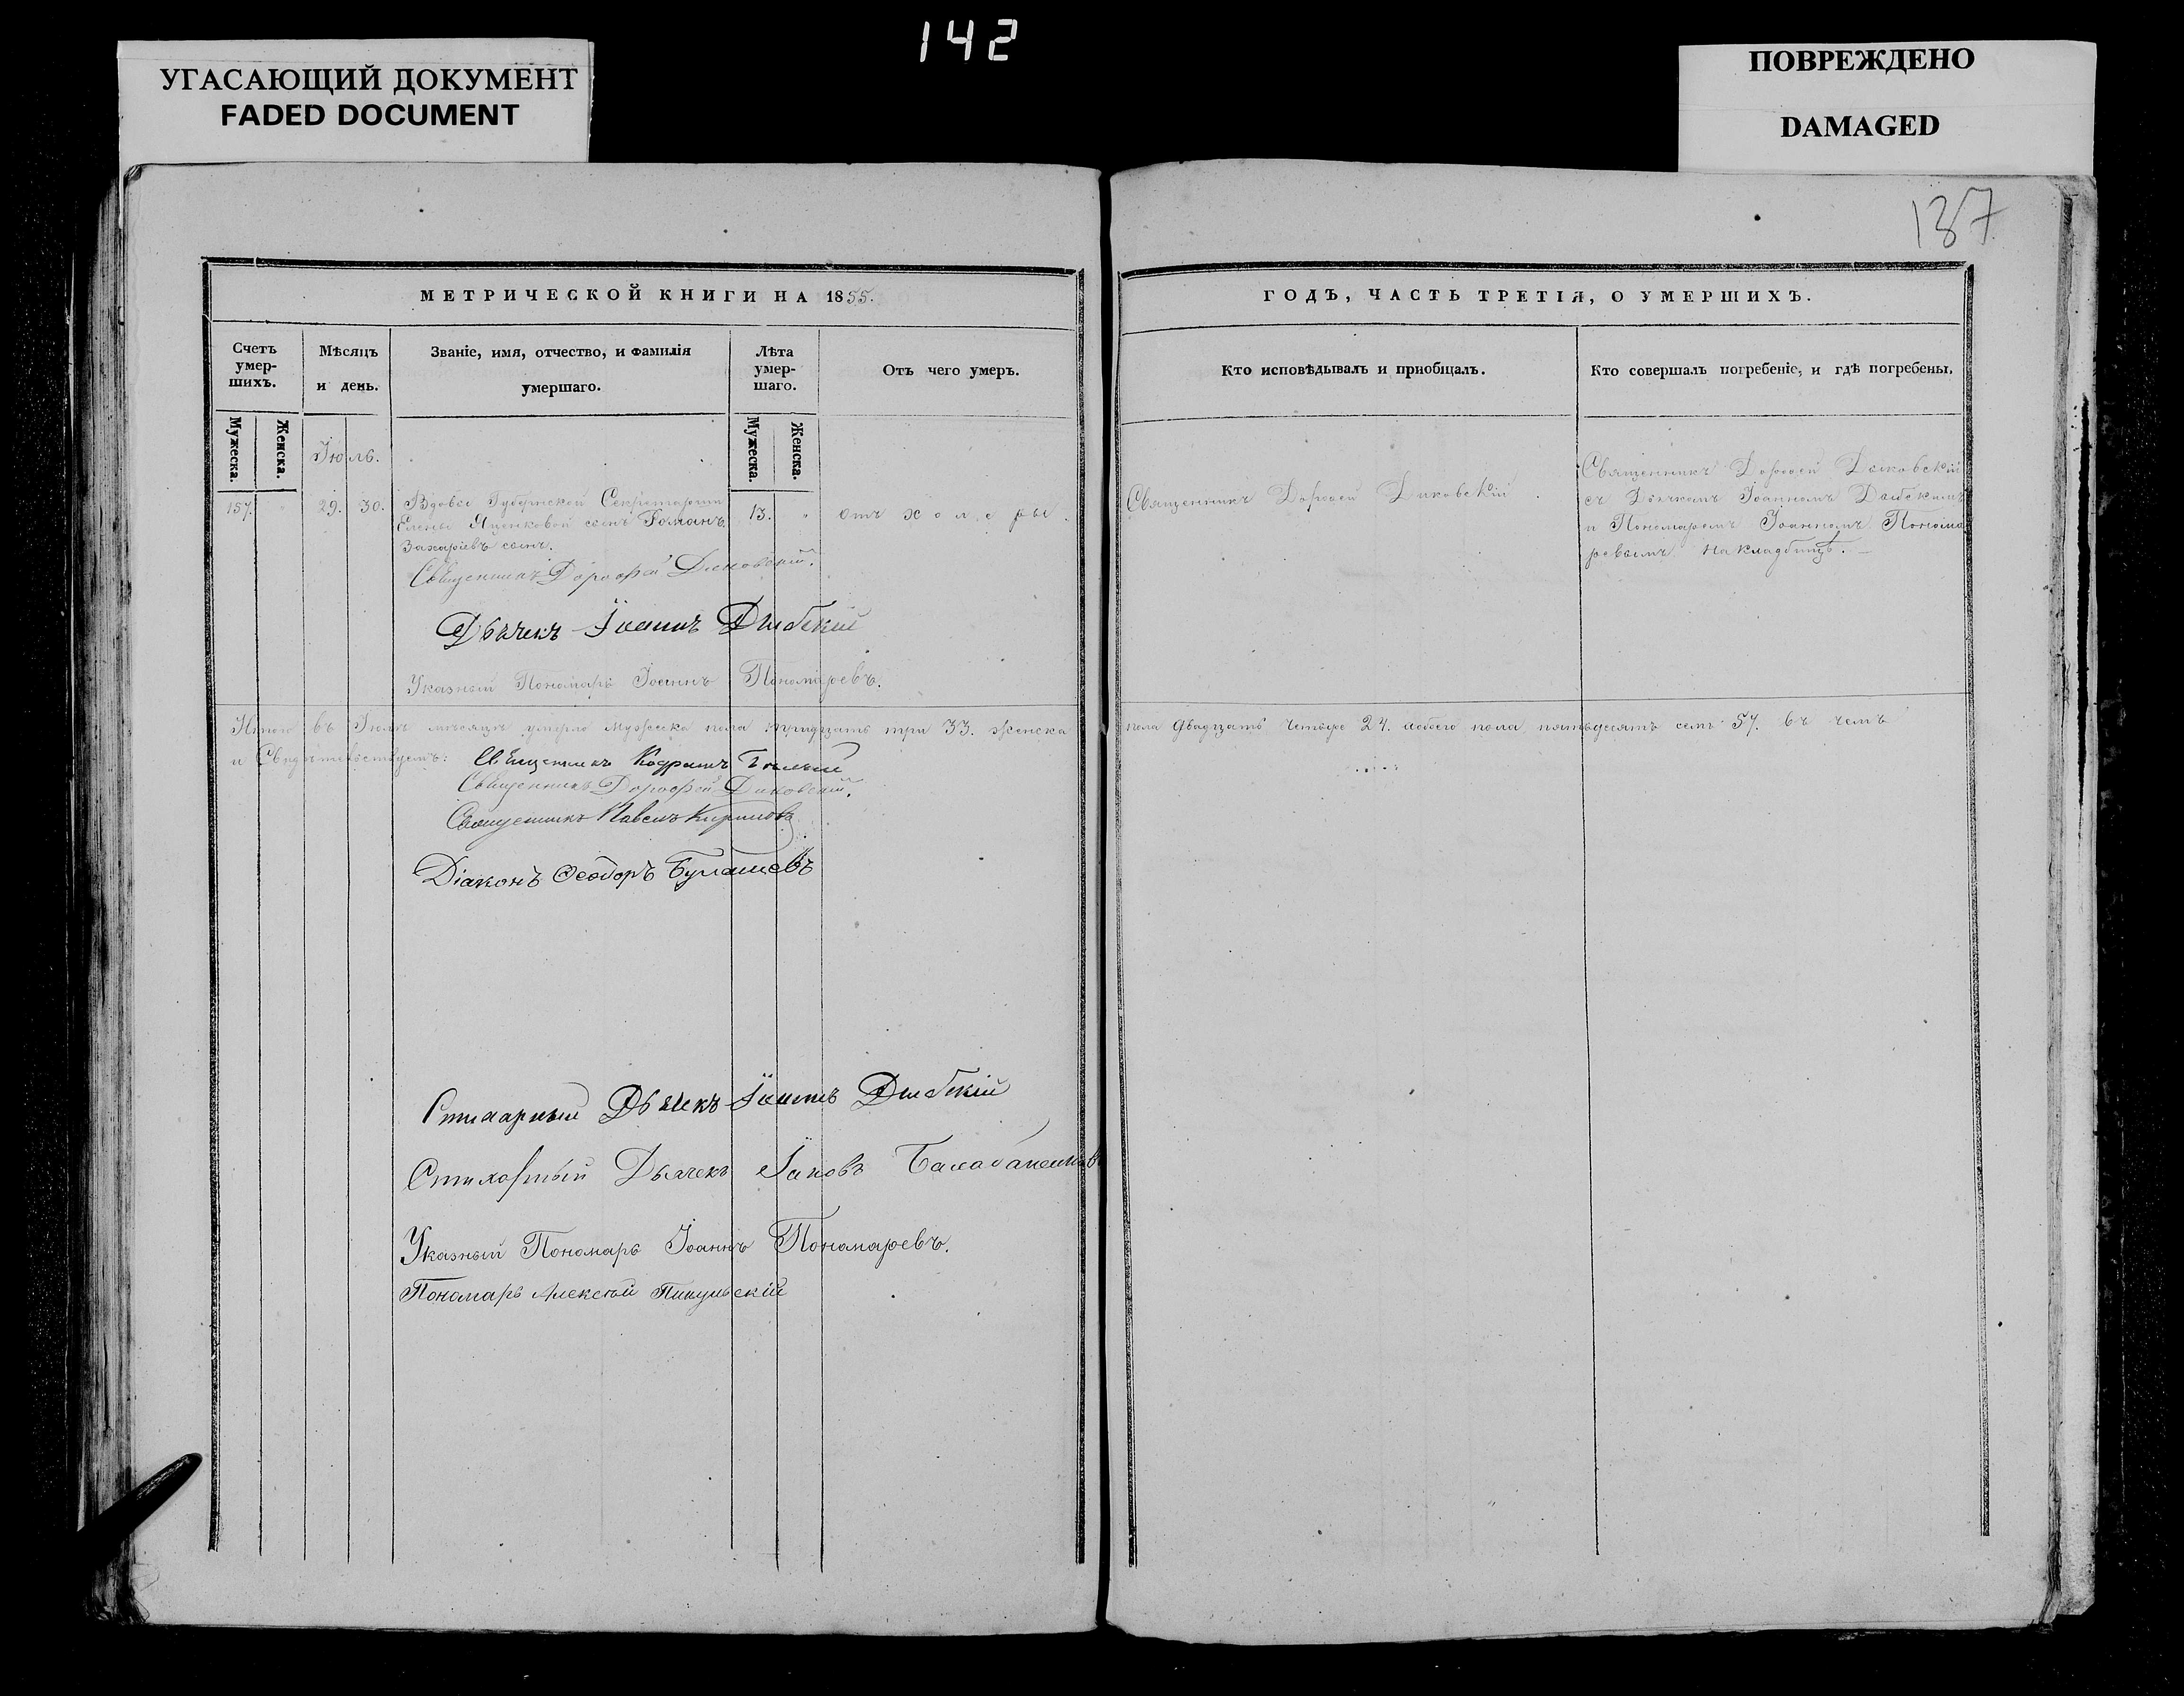 142
УГАСАЮЩИЙ ДОКУМЕНТ
FADED DOCUMENT
ПОВРЕЖДЕНО
DAMAGED
137
МЕТРИЧЕСКОЙ КНИГИ НА 1855.
Счетъ умер-шихъ.
Мѣсяцъ и день.
Званіе, имя, отчество, и фамилія умершаго.
Лѣта умер-шаго.
Отъ чего умеръ.
Мужеска.
Женска.
Мужеска.
Женска.
Іюль.
157. " 29. 30. Вдовы Губернской Секретарши 13. " отъ холеры.
Елены Яценковой сынъ Романъ
Захаріевъ сынъ.
Священникъ Дорофей Диковскій.
Дьячекъ Іоаннъ Дшбскій
Указный Пономарь Іоаннъ Пономаревъ.
Итого въ Іюлѣ мѣсяцѣ умерло мужеска пола тридцать три 33. женска
и Свидѣтельствуемъ: Священникъ Кодратъ
Священникъ Дорофей Диковскій.
Священникъ Павелъ Кириловъ
Діаконъ Ѳеодоръ Булашевъ
Стихарный Дьячекъ Іоаннъ Дшбскій
Стихарный Дьячекъ Іаковъ
Указный Пономарь Іоаннъ Пономаревъ.
Пономарь Алексѣй
ГОДЪ, ЧАСТЬ ТРЕТІЯ, О УМЕРШИХЪ.
Кто исповѣдывалъ и пріобщалъ.
Кто совершалъ погребеніе, и гдѣ погребены.
Священникъ Дорофей Диковскій.
Священникъ Дорофей Диковскій
съ Дьячкомъ Іоанномъ
и Пономаремъ Іоанномъ Понома
ревымъ на кладбищѣ.
пола двадцать четыре 24. обоего пола пятьдесятъ семь 57. въ чемъ